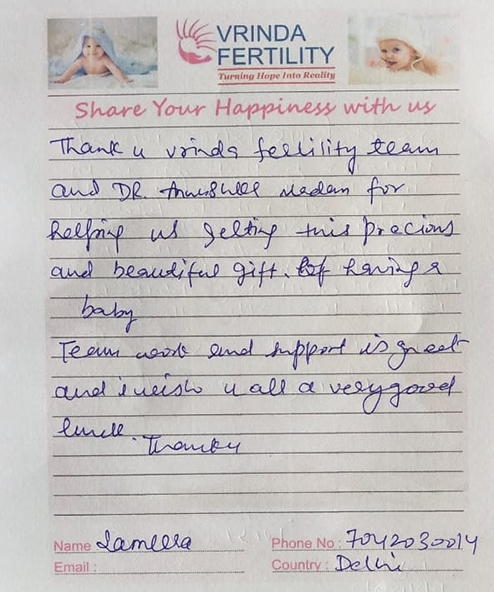 VRINDA
FERTILITY
Turning Hope Into Reality
Share Your Happiness with us
Thank u vrinda fertility team
and DR. Madam for
helping us getting this precious
and beautiful gift. of having a
baby
Team work and support is great
and i wish u all a very good
luck. Thanku
Name Sameera
Phone No : 7042030014
Email :
Country : Delhi